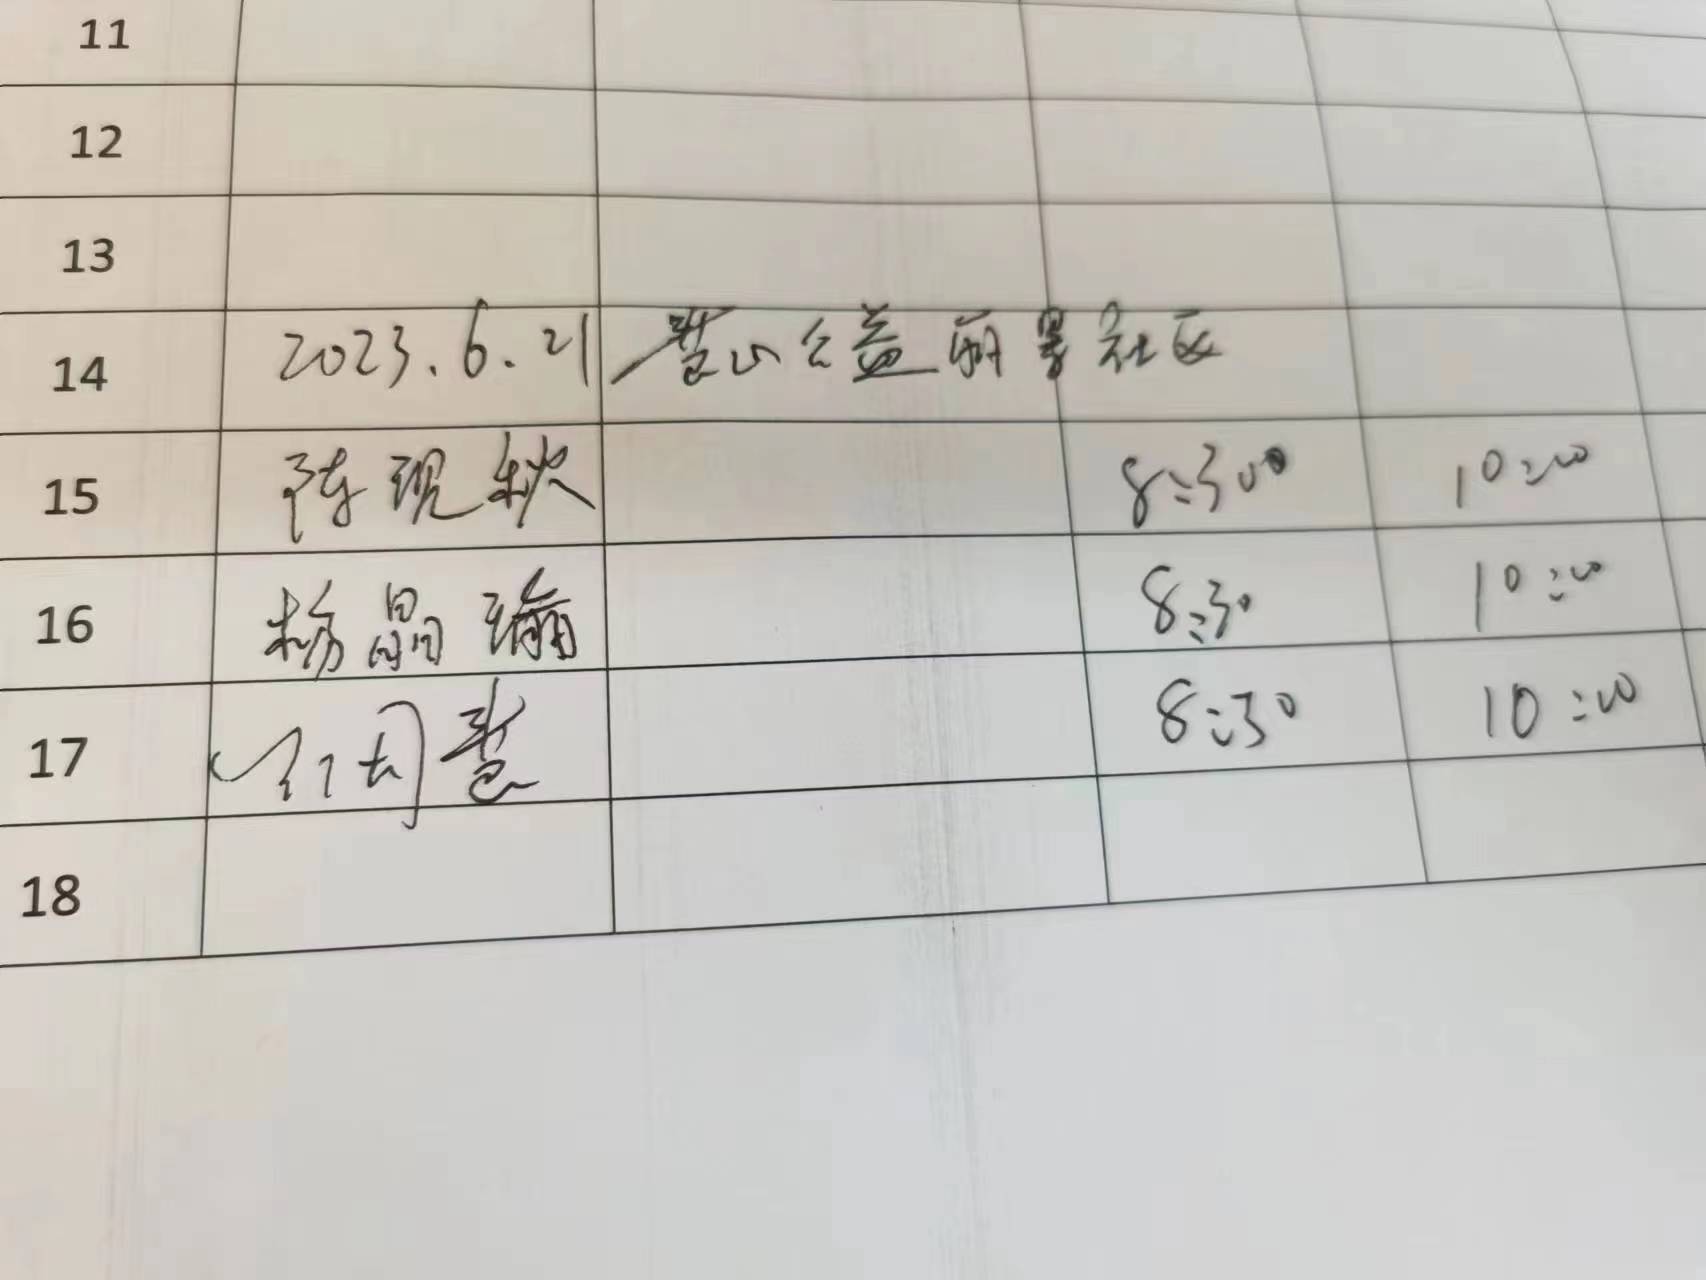 11
12
13
14 2023.6.21 慧心公益丽景社区
15 陈现秋 8:30 10:00
16 杨晶瑜 8:30 10:00
17 慧 8:30 10:00
18